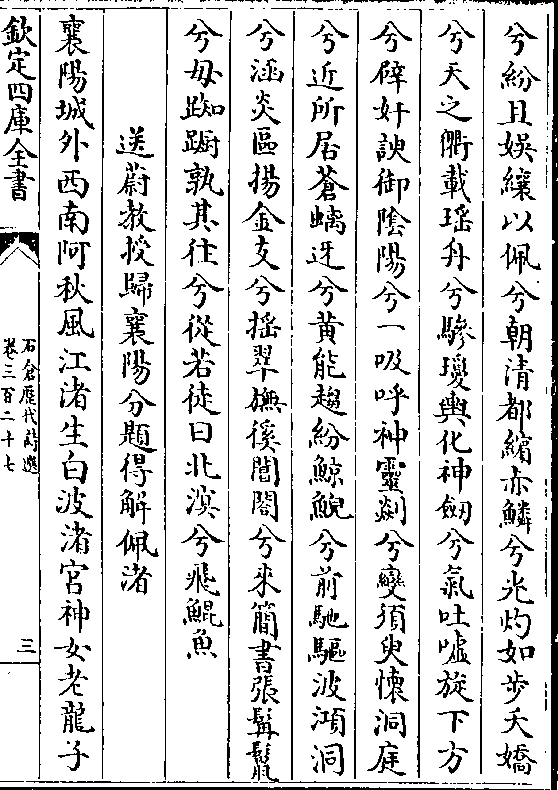 兮紛且娛纕以佩兮朝清都縮赤鱗兮光灼如步夭嬌
兮天之衢載瑤舟兮驂瓊輿化神劒兮氣吐噓旋下方
兮辟奸諛御陰陽兮一吸呼神靈剡兮變須臾懷洞庭
兮近所居蒼螭迓兮黄能趨紛鯨鯢兮前馳驅波澒洞
兮涵炎區揚金支兮揺翠旟徯閶闔兮来簡書張髯鬛
兮毋踟蹰孰其往兮從若徒曰北溟兮飛鯤魚
送蔚教授歸襄陽分題得解佩渚
襄陽城外西南阿秋風江渚生白波渚宫神女老龍子
欽定四庫全書
石倉歴代詩選
卷三百二十七
三